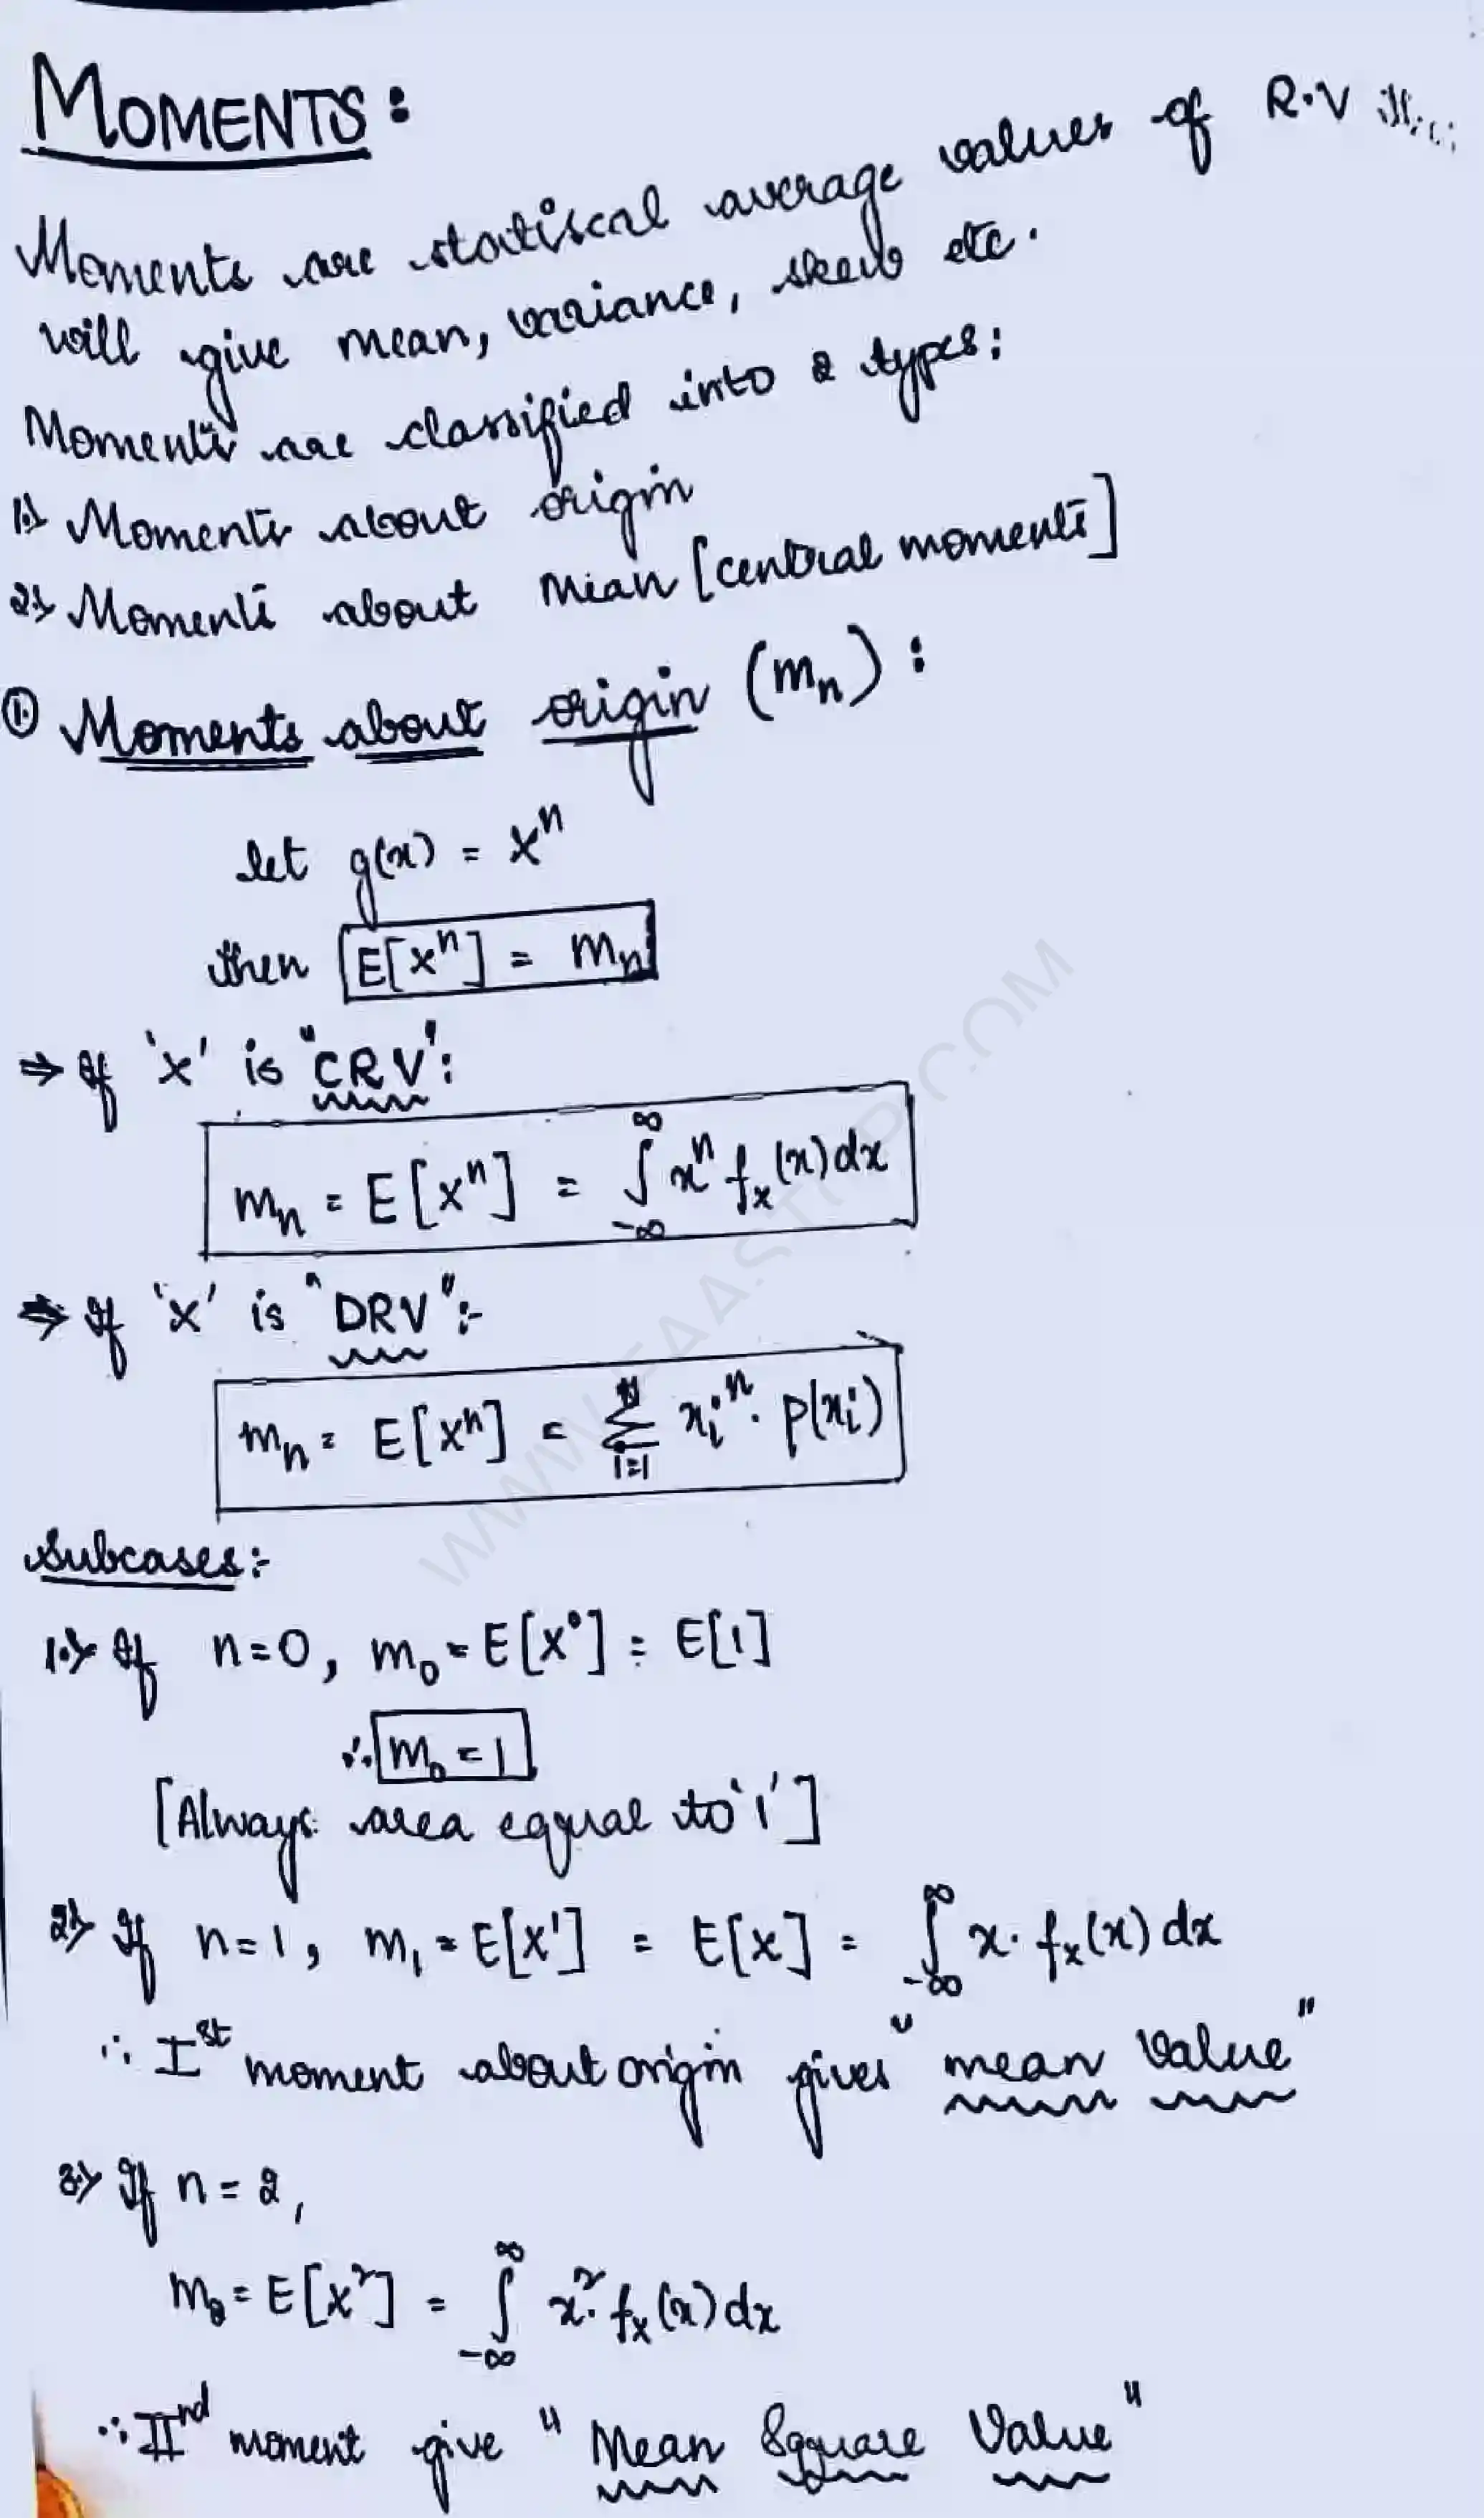 MOMENTS:
Moments are statiscal average values of R.V
will give mean, variance, skew etc.
Moments are classified into 2 types:
1.) Moments about origin
2.) Moments about mean [central moments]
① Moments about origin (mₙ):
let g(x) = xⁿ
then E[xⁿ] = mₙ
⇒ If 'x' is "CRV":
mₙ = E[xⁿ] = ∫_{-∞}^{∞} xⁿ fₓ(x) dx
⇒ If 'x' is "DRV":-
mₙ = E[xⁿ] = Σ_{i=1}^{N} xᵢⁿ. p(xᵢ)
Subcases:-
1.) If n=0, m₀ = E[x⁰] = E[1]
∴ m₀ = 1
[Always area equal to '1']
2.) If n=1, m₁ = E[x¹] = E[x] = ∫_{-∞}^{∞} x. fₓ(x) dx
∴ Iˢᵗ moment about origin gives "mean value"
3.) If n=2,
m₂ = E[x²] = ∫_{-∞}^{∞} x². fₓ(x) dx
∴ IIⁿᵈ moment give "Mean Square Value"